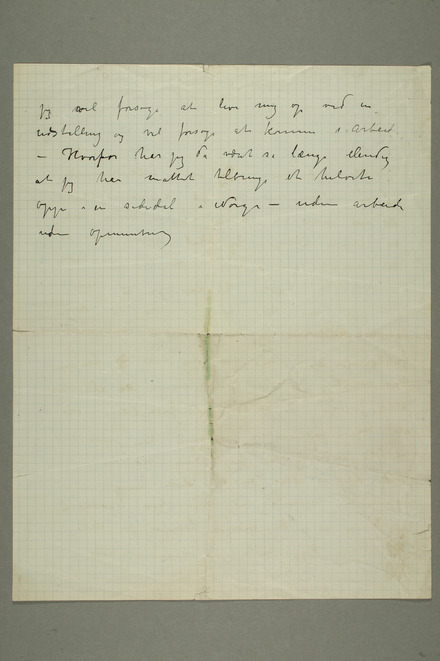 Jeg vil forsøge at live mig op ved en
udstilling og vil forsøge at komme i arbeid.
– Hvorfor har jeg da været så længe elendig
at jeg har måttet tilbringe et halvt
oppe i en i Norge – uden arbeide
uden opmuntring